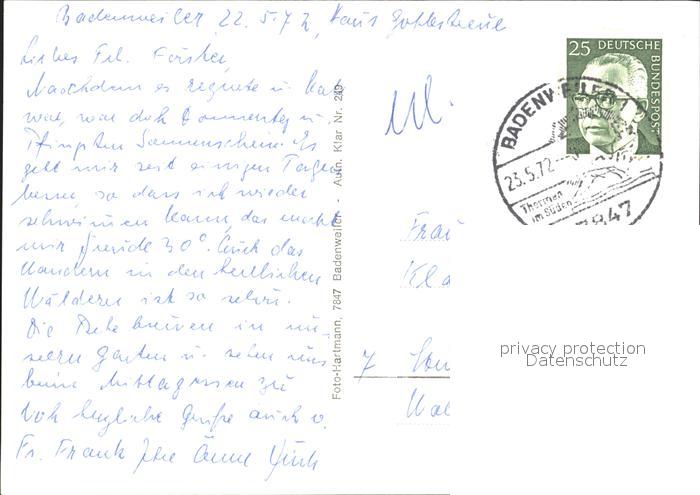 Badenweiler, 22.5.72, Haus Gottestreue
Liebes Frl. Förster,
Nachdem es regnete u. kalt
war, war doch Donnerstag u.
Pfingsten Sonnenschein. Es
geht mir seit einigen Tagen
besser, so dass ich wieder
schwimmen kann, das macht
mir Freude 30°. Auch das
Wandern in den herrlichen
Wäldern ist so schön.
Die Rehe kommen in un-
seren Garten u. sehen uns
beim Mittagessen zu
Viele herzliche Grüße auch v.
Fr. Frank Ihre Änne
Foto-Hartmann, 7847 Badenweiler - Aufn. Klar Nr. 249
25 DEUTSCHE
BUNDESPOST
BADENWEILER 1
23.5.72
Thermen
im Süden
7847
Frau
Kla
7
Wal
privacy protection
Datenschutz